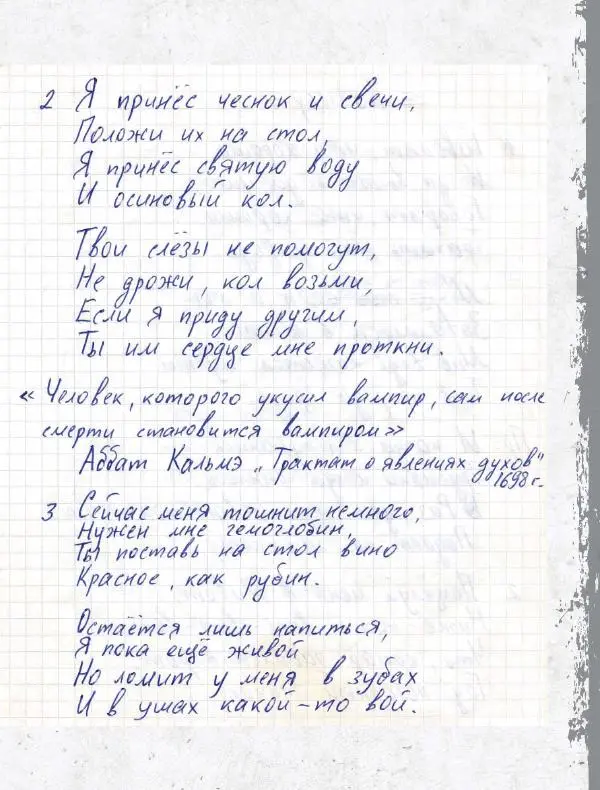 2 Я принёс чеснок и свечи,
Положи их на стол,
Я принёс святую воду
И осиновый кол.
Твои слёзы не помогут,
Не дрожи, кол возьми,
Если я приду другим,
Ты им сердце мне проткни.
«Человек, которого укусил вампир, сам после
смерти становится вампиром»
Аббат Кальмэ „Трактат о явлениях духов"
1698 г.
3 Сейчас меня тошнит немного,
Нужен мне гемоглобин,
Ты поставь на стол вино
Красное, как рубин.
Остаётся лишь напиться,
Я пока ещё живой
Но ломит у меня в зубах
И в ушах какой-то вой.